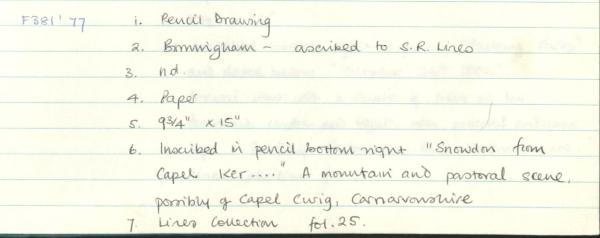 F381'77
1. Pencil Drawing
2. Birmingham - ascribed to S.R. Lines
3. nd.
4. Paper
5. 9 3/4" x 15"
6. Inscribed in pencil bottom right "Snowdon from
Capel Ker...." A mountain and pastoral scene,
possibly of Capel Curig, Carnarvonshire
7. Lines Collection fol. 25.